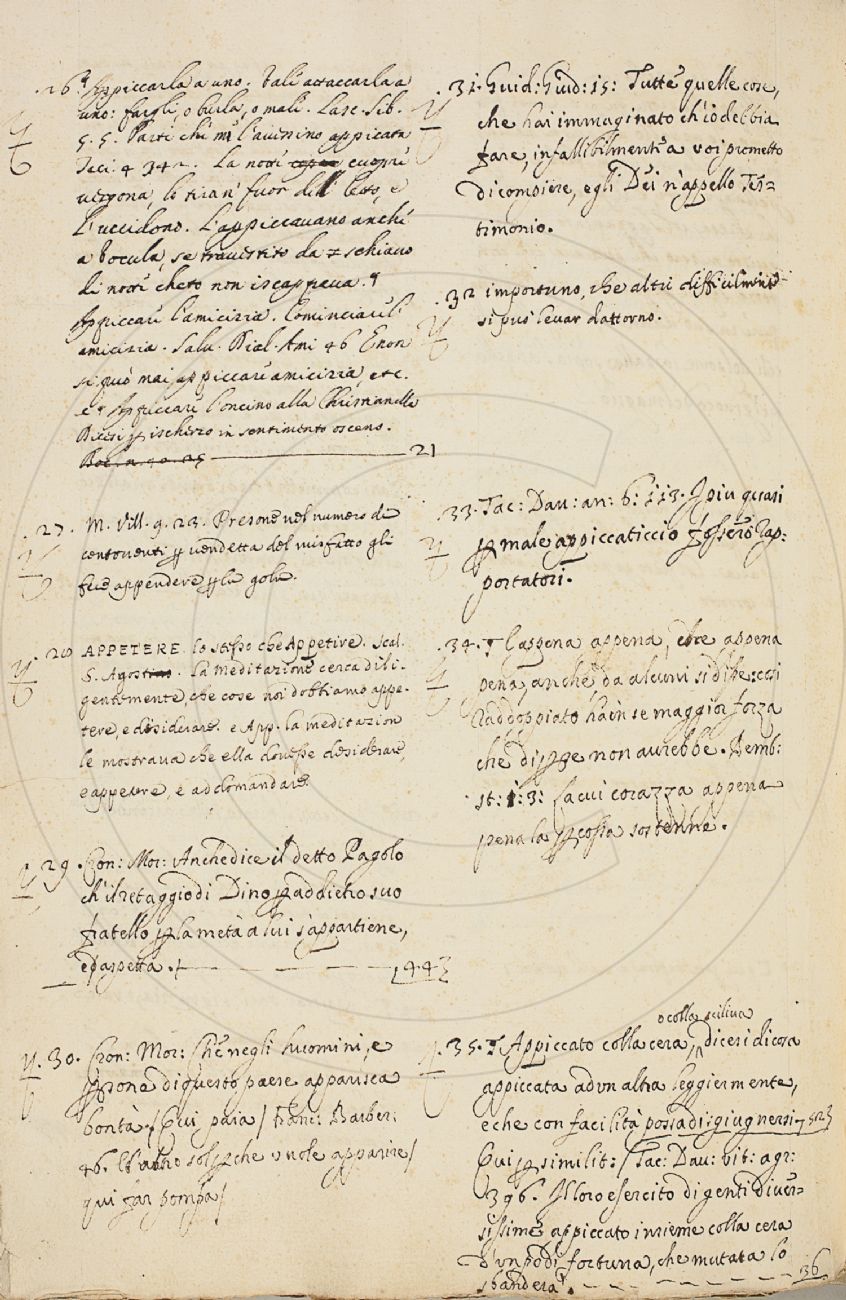 26. Appiccarla a uno. Vale attaccarla a
uno: fargli, o burla, o mali. Lasc. Sib.
5. 5. Parti chi me l'avessino appicata
Teci. 4 34 2. La notte cuopre
vergona, lo tiran' fuor dell' leto, e
l'uccidono. L'appiccavano anche
a bocula, se travestito da schiavo
di notte cheto non iscappava. §
Appiccare l'amicizia. Cominciar l'
amicizia. Salv. Dial. Ami 46 E non
si può mai appiccare amicizia, etc.
e § Appiccare l'oncino alla Christianella
Dicesi p ischerzo in sentimento osceno.
21
27. M. Vill. 9. 23. Presone nel numero di
centoventi p vendetta del misfatto gli
fece appendere p la gola.
28 APPETERE. lo stesso che Appetire. Scal.
S. Agost. La meditazione cerca dili-
gentemente, che cose noi dobbiamo appe-
tere, e desiderare. e App. la meditazion
le mostrava che ella dovesse desiderare,
e appetere, e addomandare.
29. Cron: Mor: Anche dice il detto Pagolo
ch'il retaggio di Dino p addietro suo
fratello p la metà a lui s'appartiene,
ed aspetta. 44
30. Cron: Mor: Che negli huomini, e
psone di questo paese apparisca
bontà / Qui paia / Franc: Barber:
46. Et altro sol pche vuole apparire /
qui far pompa /
31. Guid: Giud: 15: Tutte quelle cose,
che hai immaginato ch'io debbia
fare, infallibilmente a voi prometto
di compiere, e gli Dei n'appello Tes-
timonio.
32 importuno, che altri difficilmente
si può levar dattorno.
33. Tac: Dav: an: 6: 113. I piu quasi
p male appiccaticcio fossero Rap-
portatori.
34. § L'appena appena, e appena
pena, anche da alcuni si disse: così
Raddoppiato ha in se maggior forza
che di p se non avrebbe. Bemb:
st: 1: 3: La cui corazza appena
pena la pcossa sostenne.
o colla sciliva
35. § Appiccato colla cera, dicesi di cosa
appiccata ad un altra leggiermente,
e che con facilità possa disgiugnersi 52
Qui p similit: / Tac: Dav: vit: agr:
396. Il loro esercito di genti diver-
sissime appiccato insieme colla cera
d'un po di fortuna, che mutata lo
sbanderà. 36